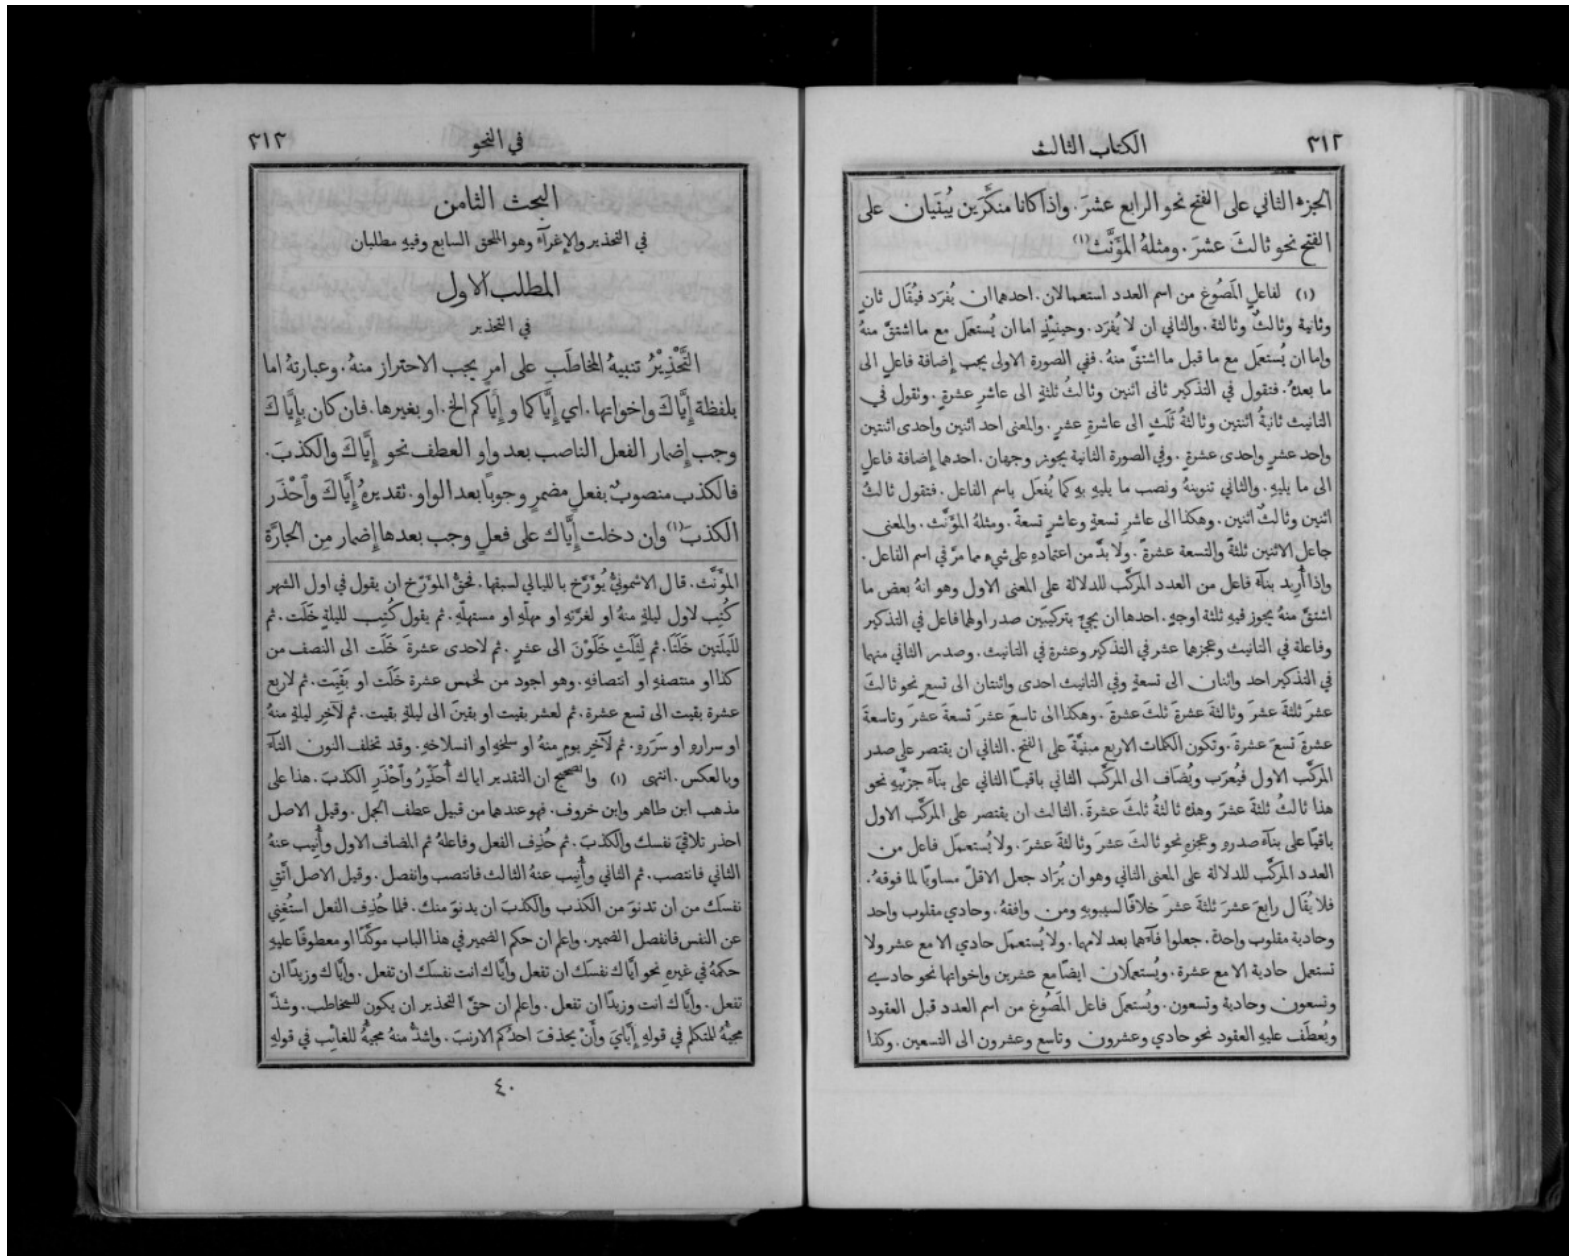 ٣١٢
الكتاب الثالث
الجزء الثاني على الفتح نحو الرابع عشرَ. واذا كانا منكَّرَين يُبقَيان على
الفتح نحو ثالثَ عشرَ. ومثلهُ المؤَنَّث (١)
(١) لفاعلٍ المَصُوغ من اسم العدد استعمالان. احدهما ان يُفرَد فيُقَال ثانٍ
وثانية وثالثٌ وثالثة. والثاني ان لا يُفرَد. وحينئِذٍ اما ان يُستعمَل مع ما اشتقَّ منهُ
واما ان يُستعمَل مع ما قبل ما اشتقَّ منهُ. ففي الصورة الاولى يجب إِضافة فاعلٍ الى
ما بعدهُ. فتقول في التذكير ثاني اثنين وثالثُ ثلثةٍ الى عاشرِ عشرةٍ. وتقول في
التانيث ثانيةُ اثنتين وثالثةُ ثَلَثٍ الى عاشرةِ عشرٍ. والمعنى احد اثنين واحدى اثنتين
واحد عشرٍ واحدى عشرةٍ. وفي الصورة الثانية يجوز وجهان. احدهما إِضافة فاعلٍ
الى ما يليهِ. والثاني تنوينهُ ونصب ما يليهِ بهِ كما يُفعَل باسم الفاعل. فتقول ثالثُ
اثنين وثالثٌ اثنين. وهكذا الى عاشرِ تسعةٍ وعاشرٍ تسعةً. ومثلهُ المؤَنَّث. والمعنى
جاعل الاثنين ثلثةً والتسعة عشرةً. ولا بدَّ من اعتمادهِ على شيءٍ مما مرَّ في اسم الفاعل.
واذا أُرِيد بنآءُ فاعل من العدد المركَّب للدلالة على المعنى الاول وهو انهُ بعض ما
اشتقَّ منهُ يجوز فيهِ ثلثة اوجهٍ. احدها ان يجيَّ بتركيبَين صدر اولهما فاعل في التذكير
وفاعلة في التانيث وعجزهما عشر في التذكير وعشرة في التانيث. وصدر الثاني منهما
في التذكير احد واثنان الى تسعةٍ وفي التانيث احدى واثنتان الى تسعٍ نحو ثالثَ
عشرَ ثلثةَ عشرَ وثالثةَ عشرةَ ثلثَ عشرةَ. وهكذا الى تاسعَ عشرَ تسعةَ عشرَ وتاسعةَ
عشرةَ تسعَ عشرةَ. وتكون الكلمات الاربع مبنيَّةً على الفتح. الثاني ان يقتصر على صدر
المركَّب الاول فيُعرَب ويُضَاف الى المركَّب الثاني باقيًا الثاني على بنآءِ جزئَيهِ نحو
هذا ثالثُ ثلثةَ عشرَ وهذهِ ثالثةُ ثلثَ عشرةَ. الثالث ان يقتصر على المركَّب الاول
باقيًا على بنآءِ صدرهِ وعجزهِ نحو ثالثَ عشرَ وثالثةَ عشرَ. ولا يُستعمَل فاعل من
العدد المركَّب للدلالة على المعنى الثاني وهو ان يُرَاد جعل الاقلّ مساويًا لما فوقهُ.
فلا يُقَال رابعَ عشرَ ثلثةَ عشرَ خلافًا لسيبويهِ ومن وافقهُ. وحادي مقلوب واحد
وحادية مقلوب واحدة. جعلوا فآءَهما بعد لامهما. ولا يُستعمَل حادي الا مع عشر ولا
تستعمل حادية الا مع عشرة. ويُستعمَلان ايضًا مع عشرين واخواتها نحو حادي
وتسعون وحادية وتسعون. ويُستعمَل فاعل المَصُوغ من اسم العدد قبل العقود
ويُعطَف عليهِ العقود نحو حادي وعشرون وتاسع وعشرون الى التسعين. وكذا
في النحو
٣١٣
البحث الثامن
في التحذير والإِغرآءِ وهو الملحق السابع وفيهِ مطلبان
المطلب الاول
في التحذير
التَّحْذِيْرُ تنبيهُ المخاطَبِ على امرٍ يجب الاحتراز منهُ. وعبارتهُ اما
بلفظة إِيَّاكَ واخواتها. اي إِيَّاكما وإِيَّاكم الخ. او بغيرها. فان كان بإِيَّاكَ
وجب إِضمار الفعل الناصب بعد واو العطف نحو إِيَّاكَ والكذبَ.
فالكذب منصوبٌ بفعلٍ مضمرٍ وجوبًا بعد الواو. تقديرهُ إِيَّاكَ وٱحْذَر
الكذبَ (١) وان دخلت إِيَّاك على فعلٍ وجب بعدها إِضمار مِن الجارَّة
المؤَنَّث. قال الاشمونيُّ يُؤَرَّخ بالليالي لسبقها. فحقُّ المؤَرّخ ان يقول في اول الشهر
كُتِب لاول ليلةٍ منهُ او لغرَّتهِ او مهلّهِ او مستهلّهِ. ثم يقول كُتِب لليلةٍ خَلَت. ثم
لليلتين خَلَتَا. ثم لِثَلَثٍ خَلَوْنَ الى عشرٍ. ثم لاحدى عشرةَ خَلَت الى النصف من
كذا او منتصفهِ او انتصافهِ. وهو اجود من لخمس عشرة خَلَت او بَقِيَت. ثم لاربع
عشرة بقيت الى تسع عشرة. ثم لعشر بقيت او بقينَ الى ليلةٍ بقيت. ثم لآخِر ليلةٍ منهُ
او سرارهِ او سَرَرهِ. ثم لآخِر يومٍ منهُ او سلخهِ او انسلاخهِ. وقد تخلف النون التآءَ
وبالعكس. انتهى (١) والصحيح ان التقدير اياك أُحَذِّرُ وٱحْذَرِ الكذبَ. هذا على
مذهب ابن طاهر وابن خروف. فهو عندهما من قبيل عطف الجمل. وقيل الاصل
احذر تلاقيَ نفسك والكذبَ. ثم حُذِف الفعل وفاعلهُ ثم المضاف الاول وأُنِيب عنهُ
الثاني فانتصب. ثم الثاني وأُنِيب عنهُ الثالث فانتصب وانفصل. وقيل الاصل اتَّقِ
نفسَك من ان تدنوَ من الكذب والكذبَ ان يدنوَ منك. فلما حُذِف الفعل استُغنِي
عن النفس فانفصل الضمير. واعلم ان حكم الضمير في هذا الباب موكّدًا او معطوفًا عليهِ
حكمهُ في غيرهِ نحو ايَّاك نفسَك ان تفعل وايَّاك انت نفسُك ان تفعل. وايَّاك وزيدًا ان
تفعل. وايَّاك انت وزيدًا ان تفعل. واعلم ان حقّ التحذير ان يكون للمخاطب. وشذَّ
مجيئُهُ للمتكلم في قولهِ إِيَّايَ وأَنْ يحذفَ احدُكم الارنبَ. واشذُّ منهُ مجيئُهُ للغائِب في قولهِ
٤٠